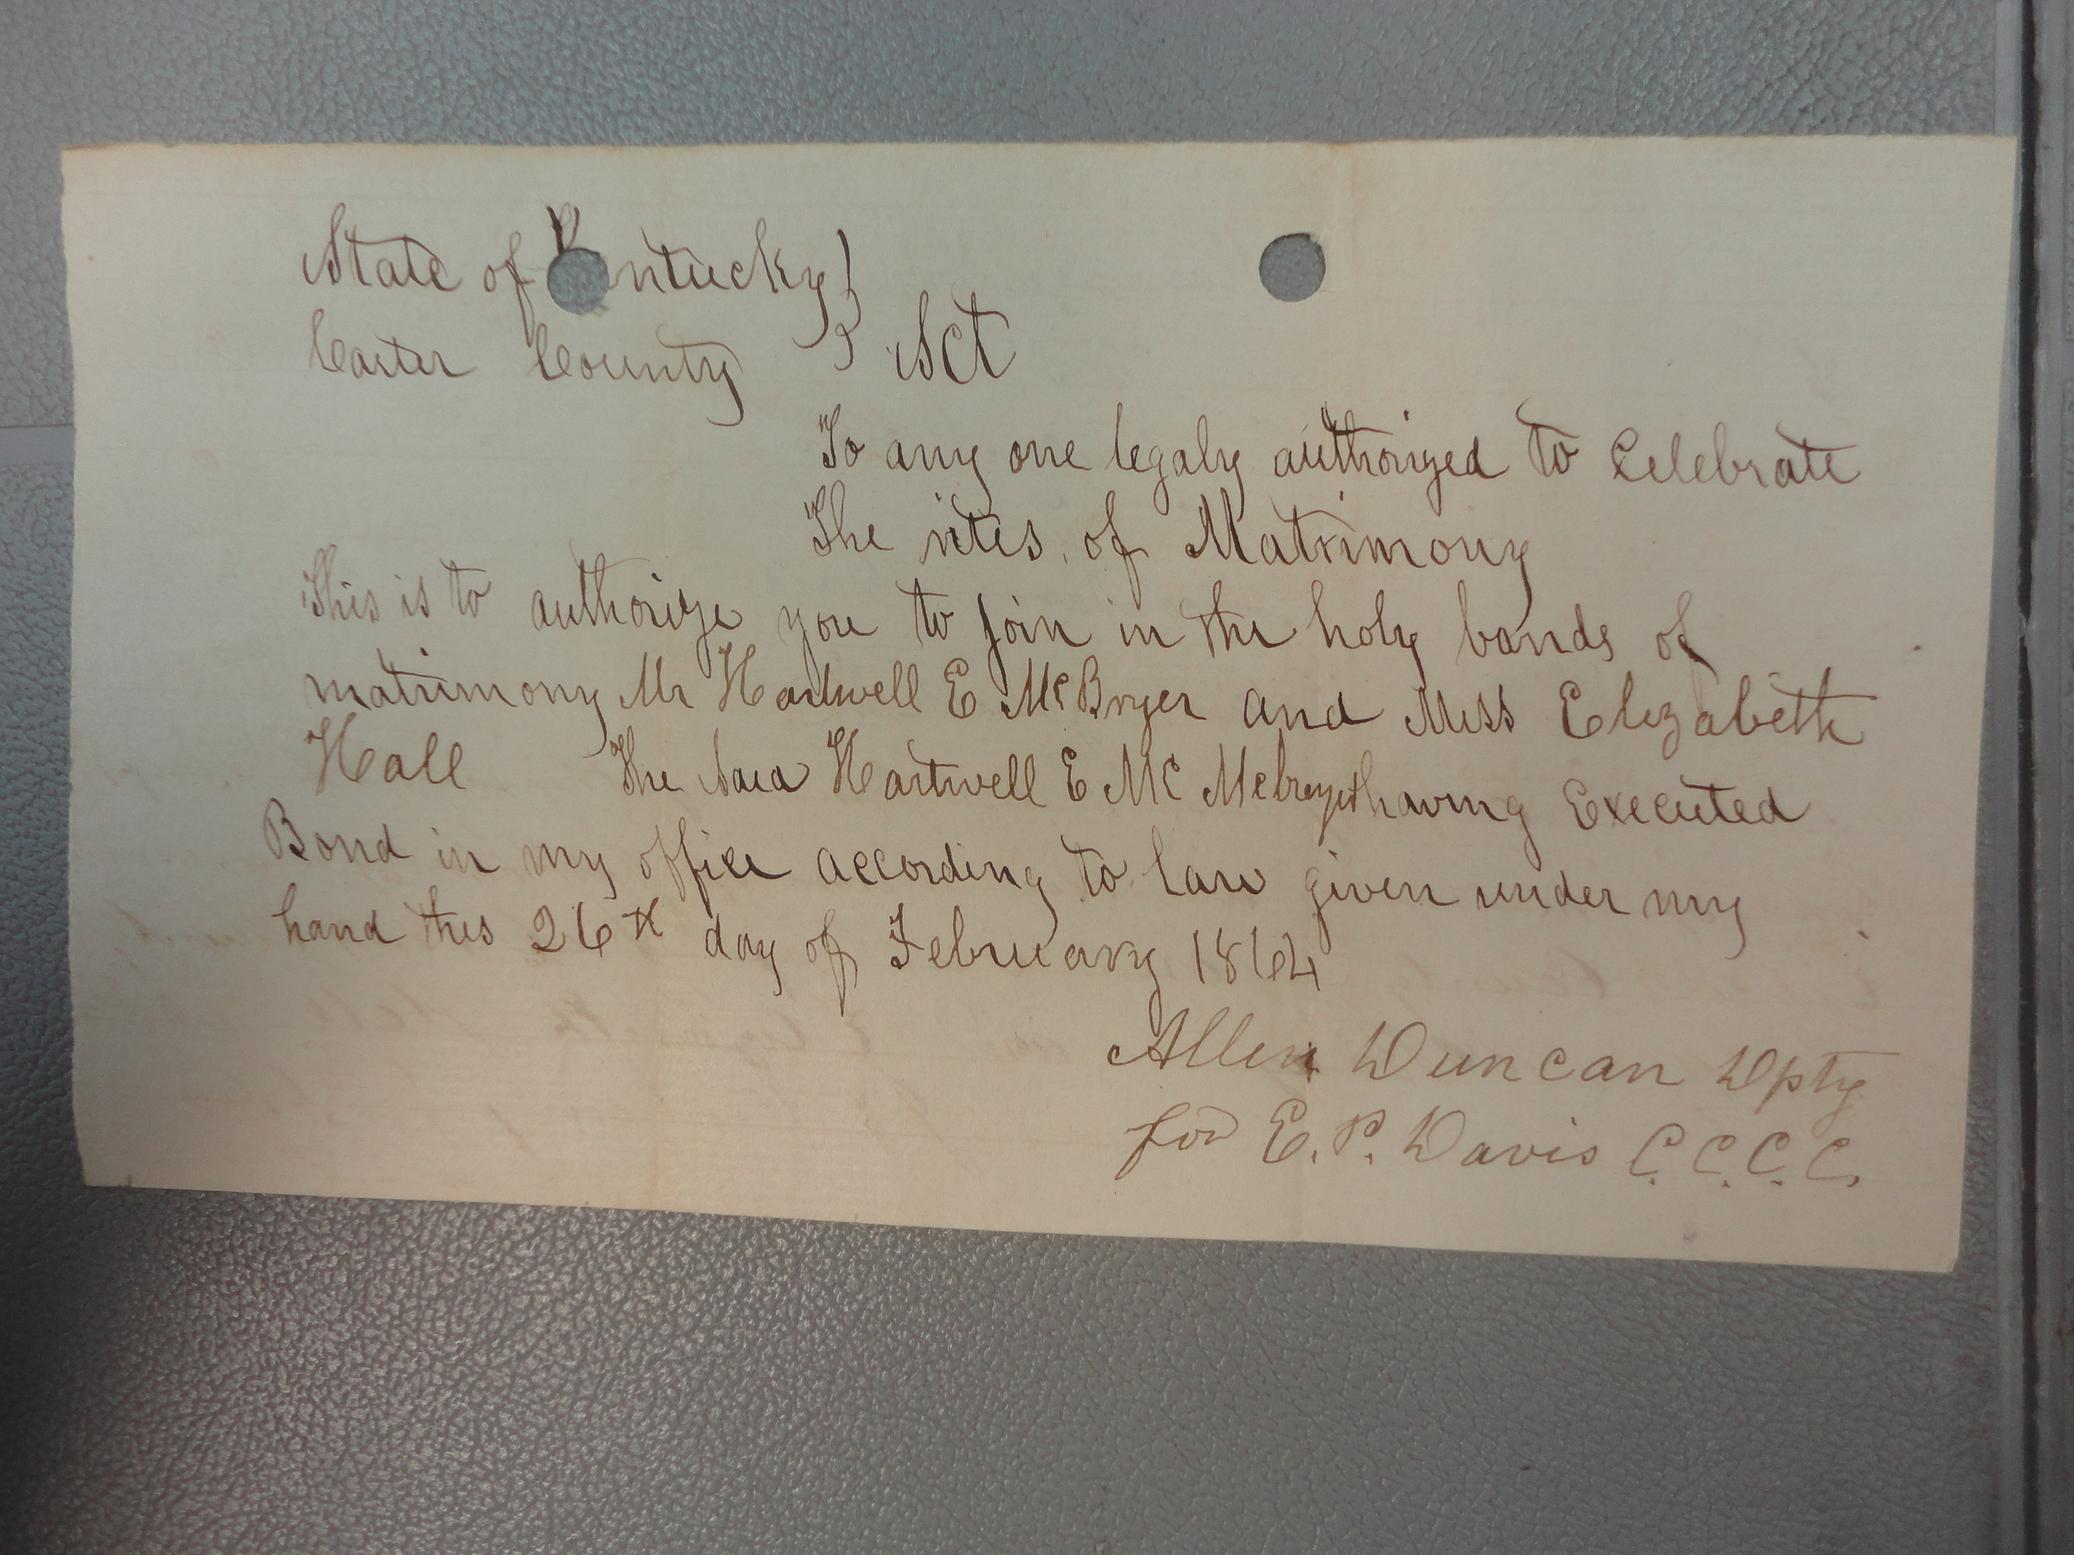 State of Kentucky }
Carter County } Sct
To any one legaly authorized to Celebrate
The rites of Matrimony
This is to authorize you to join in the holy bands of
matrimony Mr Hartwell E McBryer and Miss Elizabeth
Hall The Said Hartwell E Mc Mcbryer having Executed
Bond in my office according to law given under my
hand this 26th day of February 1864
Allen Duncan Dpty
for E. P. Davis C.C.C.C.